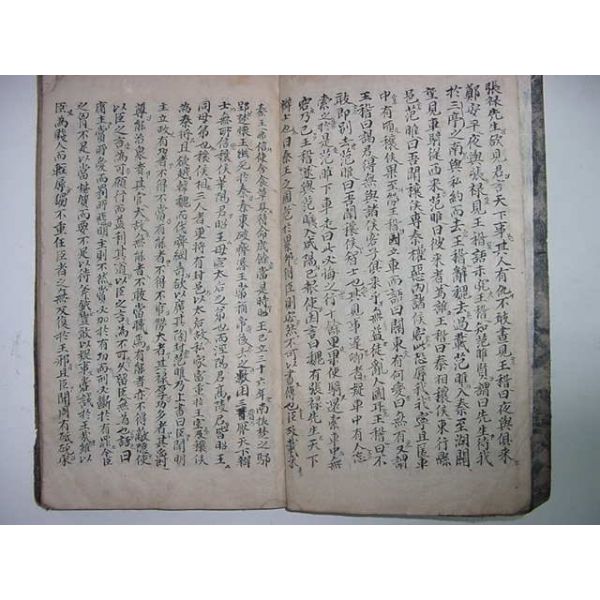 張祿先生欲見君言天下事其人有仇不敢晝見王稽曰夜與俱來
鄭安平夜與張祿見王稽語未究王稽知范睢賢謂曰先生待我
於三亭之南與私約而去王稽辭魏去過載范睢入秦至湖關
望見車騎從西來范睢曰彼來者為誰王稽曰秦相穰侯東行縣
邑范睢曰吾聞穰侯專秦權惡內諸侯客恐辱我我寧且匿車
中有頃穰侯果至勞王稽因立車而語曰關東有何變曰無有又謂
王稽曰謁君得無與諸侯客子俱來乎無益徒亂人國耳王稽曰不
敢即別去范睢曰吾聞穰侯智士也其見事遲鄉者疑車中有人忘
索之於是范睢下車走曰此必悔之行十餘里果使騎還索車中無
客乃已王稽遂與范睢入咸陽已報使因言曰魏有張祿先生天下
辯士也曰秦王之國危於累卵得臣則安然不可以書傳也臣故載來
秦王弗信使舍食草具待命歲餘當是時昭王已立三十六年南拔楚之鄢
郢楚懷王幽死於秦秦東破齊湣王嘗稱帝後去之數困三晉厭天下辯
士無所信穰侯華陽君昭王母宣太后之弟也而涇陽君高陵君皆昭王
同母弟也穰侯相三人者更將有封邑以太后故私家富重於王室及穰侯
為秦將且欲越韓魏而伐齊綱壽欲以廣其陶封范睢乃上書曰臣聞明
主立政有功者不得不賞有能者不得不官勞大者其祿厚功多者其爵
尊能治眾者其官大故無能者不敢當職焉有能者亦不得蔽隱使
以臣之言為可願行而益利其道以臣之言為不可久留臣無為也語曰
庸主賞所愛而罰所惡明主則不然賞必加於有功而刑必斷於有罪今臣
之胸不足以當椹質而要不足以待斧鉞豈敢以疑事嘗試於王哉雖以
臣為賤人而輕辱獨不重任臣者之無反復於王邪且臣聞周有砥砨